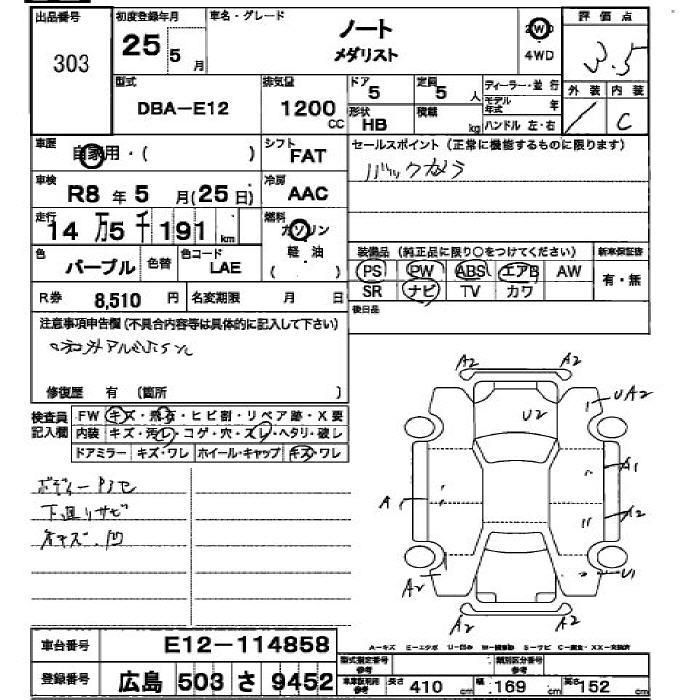 出品番号 303
初度登録年月 25 5 月
車名・グレード ノート メダリスト
2WD 4WD
評価点 3.5
外装 内装 C
型式 DBA-E12
排気量 1200 CC
ドア 5
形状 HB
定員 5 人
積載 kg
ディーラー・並行
モデル年式 年
ハンドル 左・右
車歴 自家用・( )
シフト FAT
セールスポイント (正常に機能するものに限ります)
バックカメラ
車検 R8 年 5 月(25 日)
冷房 AAC
走行 14 万 5 千 191 km
燃料 ガソリン 軽・油 ( )
色 パープル 色替 色コード LAE
装備品 (純正品に限り○をつけてください) 新車保証書
PS PW ABS エアB AW 有・無
SR ナビ TV カワ
後日品
R券 8,510 円 名変期限 月 日
注意事項申告欄 (不具合内容等は具体的に記入して下さい)
修復歴 有 (箇所 )
検査員記入欄
FW キズ・飛石・ヒビ割・リペア跡・X要
内装 キズ・汚レ・コゲ・穴・ズレ・ヘタリ・破レ
ドアミラー キズ・ワレ ホイール・キャップ キズ・ワレ
下廻りサビ
A2 A2
UA2
U2
A1
A
A2
A2 U1
A2 A2
車台番号 E12-114858
A-キズ E-エクボ U-凹み
登録番号 広島 503 さ 9452
型式指定番号 参考
類別区分番号 参考
長さ 410 cm 幅 169 cm 高さ 152 cm